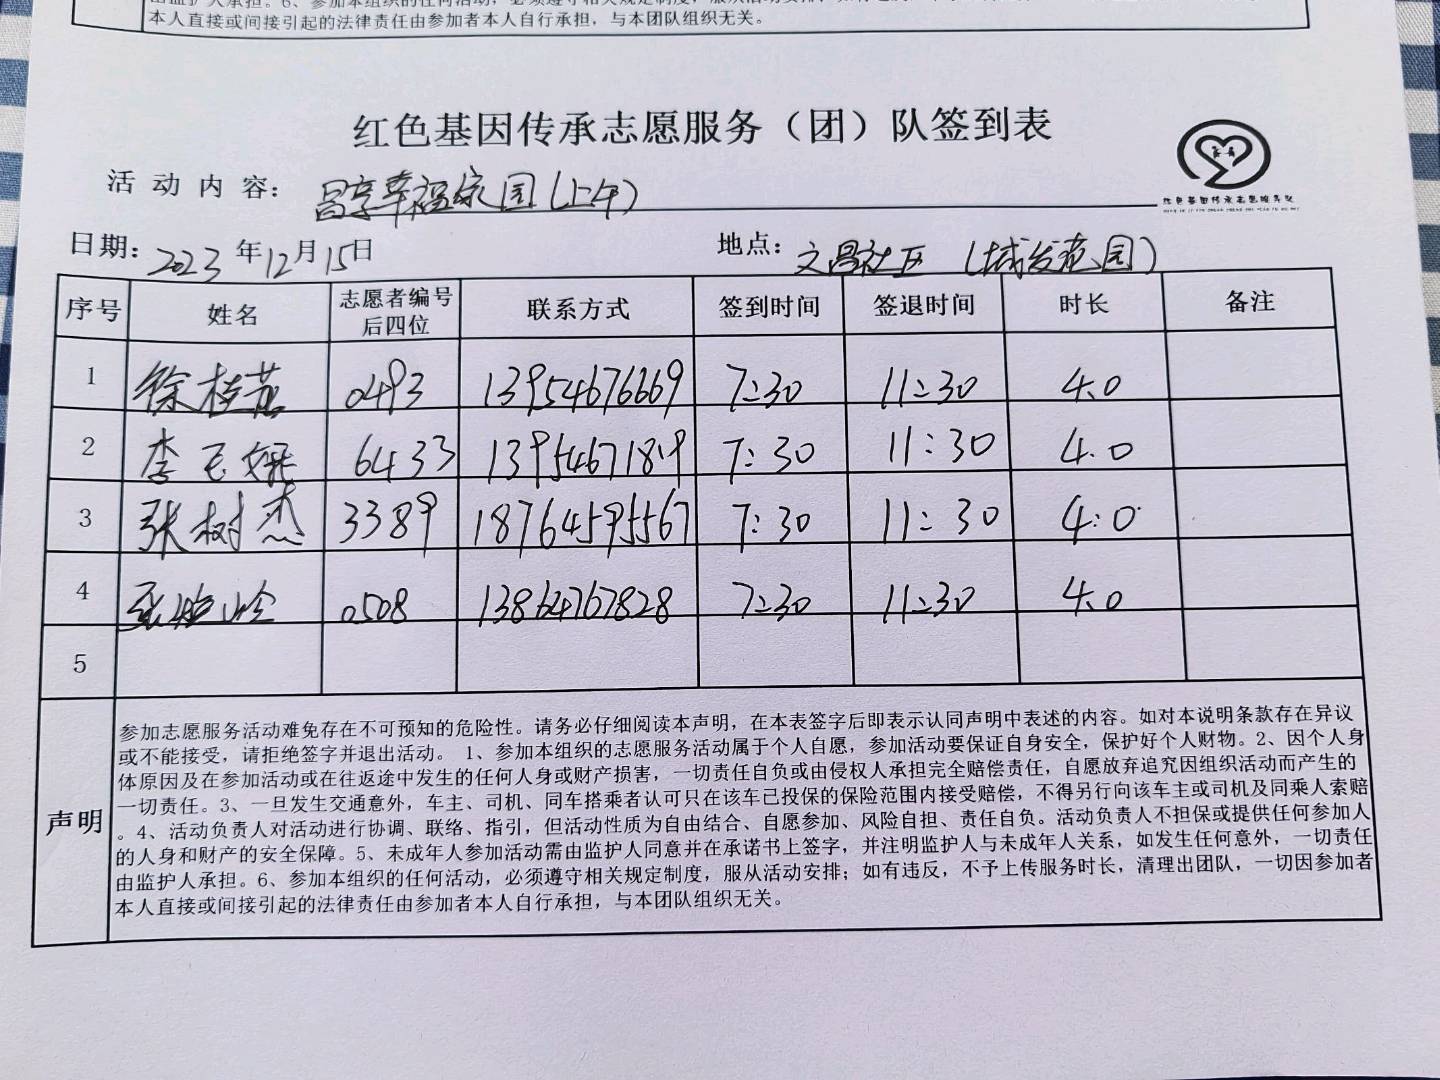 本人直接或间接引起的法律责任由参加者本人自行承担，与本团队组织无关。
红色基因传承志愿服务（团）队签到表
红色基因传承志愿服务队
活动内容： 昌享幸福家园（上午）
日期：2023年12月15日 地点：文昌社区（城发花园）
序号 姓名 志愿者编号后四位 联系方式 签到时间 签退时间 时长 备注
1 徐桂 0493 13954676669 7:30 11:30 4.0
2 李玉 6433 13954671819 7:30 11:30 4.0
3 张树杰 3389 18764595567 7:30 11:30 4.0
4 张 0508 13864767828 7:30 11:30 4.0
5
声明
参加志愿服务活动难免存在不可预知的危险性。请务必仔细阅读本声明，在本表签字后即表示认同声明中表述的内容。如对本说明条款存在异议
或不能接受，请拒绝签字并退出活动。 1、参加本组织的志愿服务活动属于个人自愿，参加活动要保证自身安全，保护好个人财物。2、因个人身
体原因及在参加活动或在往返途中发生的任何人身或财产损害，一切责任自负或由侵权人承担完全赔偿责任，自愿放弃追究因组织活动而产生的
一切责任。3、一旦发生交通意外，车主、司机、同车搭乘者认可只在该车已投保的保险范围内接受赔偿，不得另行向该车主或司机及同乘人索赔
。4、活动负责人对活动进行协调、联络、指引，但活动性质为自由结合、自愿参加、风险自担、责任自负。活动负责人不担保或提供任何参加人
的人身和财产的安全保障。5、未成年人参加活动需由监护人同意并在承诺书上签字，并注明监护人与未成年人关系，如发生任何意外，一切责任
由监护人承担。6、参加本组织的任何活动，必须遵守相关规定制度，服从活动安排；如有违反，不予上传服务时长，清理出团队，一切因参加者
本人直接或间接引起的法律责任由参加者本人自行承担，与本团队组织无关。